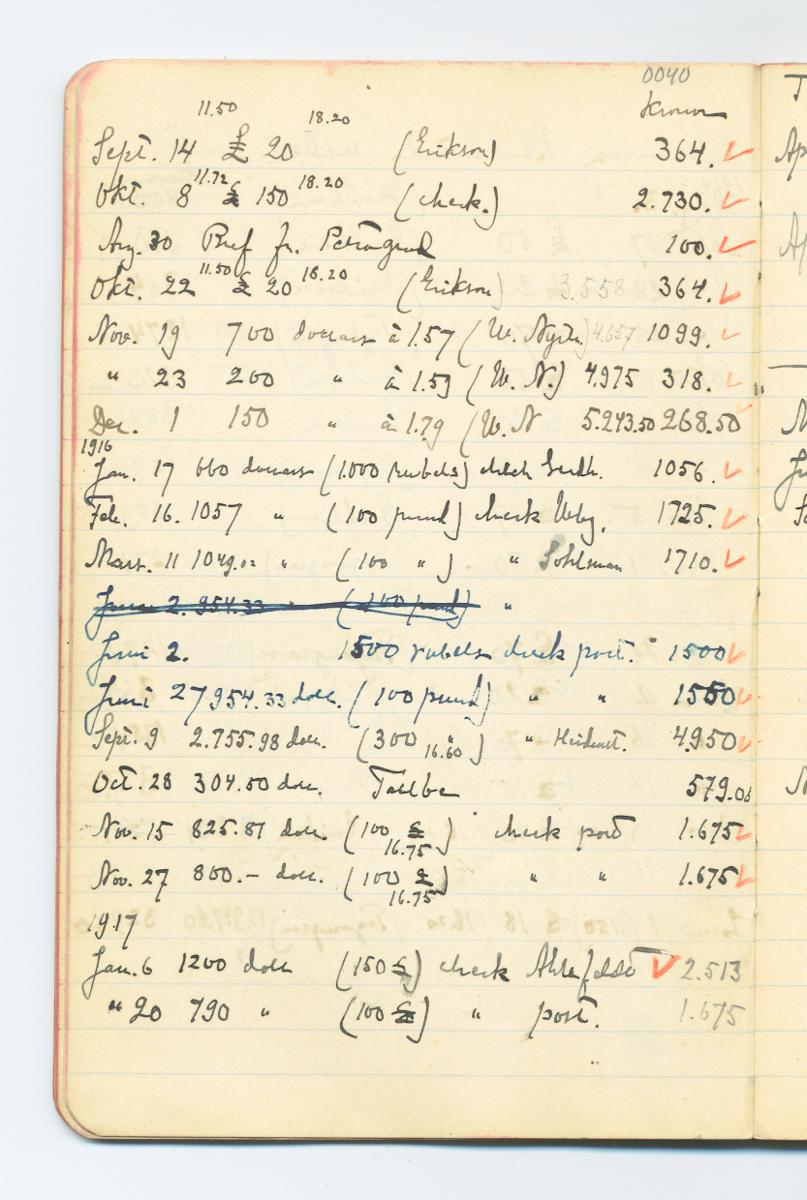 0040
Kronor
11.50 18.20
Sept. 14 £ 20 (Erikson) 364. ✓
Okt. 8 11.72 £ 150 18.20 (check.) 2.730. ✓
Aug. 30 Bref fr. Petrograd 100. ✓
Okt. 22 11.50 £ 20 18.20 (Erikson) 3.558 364. ✓
Nov. 19 700 dollars à 1.57 (W. Nyström) 4.657 1099. ✓
" 23 200 " à 1.59 (W. N.) 4.975 318. ✓
Dec. 1 150 " à 1.79 (W. N 5.243.50 268.50
1916
Jan. 17 660 dollars (1.000 rubels) check 1056. ✓
Feb. 16. 1057 " (100 pund) check 1725. ✓
Mars. 11 1049.02 " (100 " ) " Sohlman 1710. ✓
Juni 2. 954.33 " (100 pund) "
Juni 2. 1500 rubels check post. 1500 ✓
Juni 27 954.33 doll. (100 pund) " " 1550 ✓
Sept. 9 2.755.98 doll. (300 " 16.60) " 4.950 ✓
Oct. 28 304.50 doll. 579.06
Nov. 15 825.87 doll. (100 £ 16.75) check post 1.675 ✓
Nov. 27 800.- doll. (100 £ 16.75) " " 1.675 ✓
1917
Jan. 6 1200 doll (150 £) check Ahlefeldt ✓ 2.513
" 20 790 " (100 £) " post. 1.675